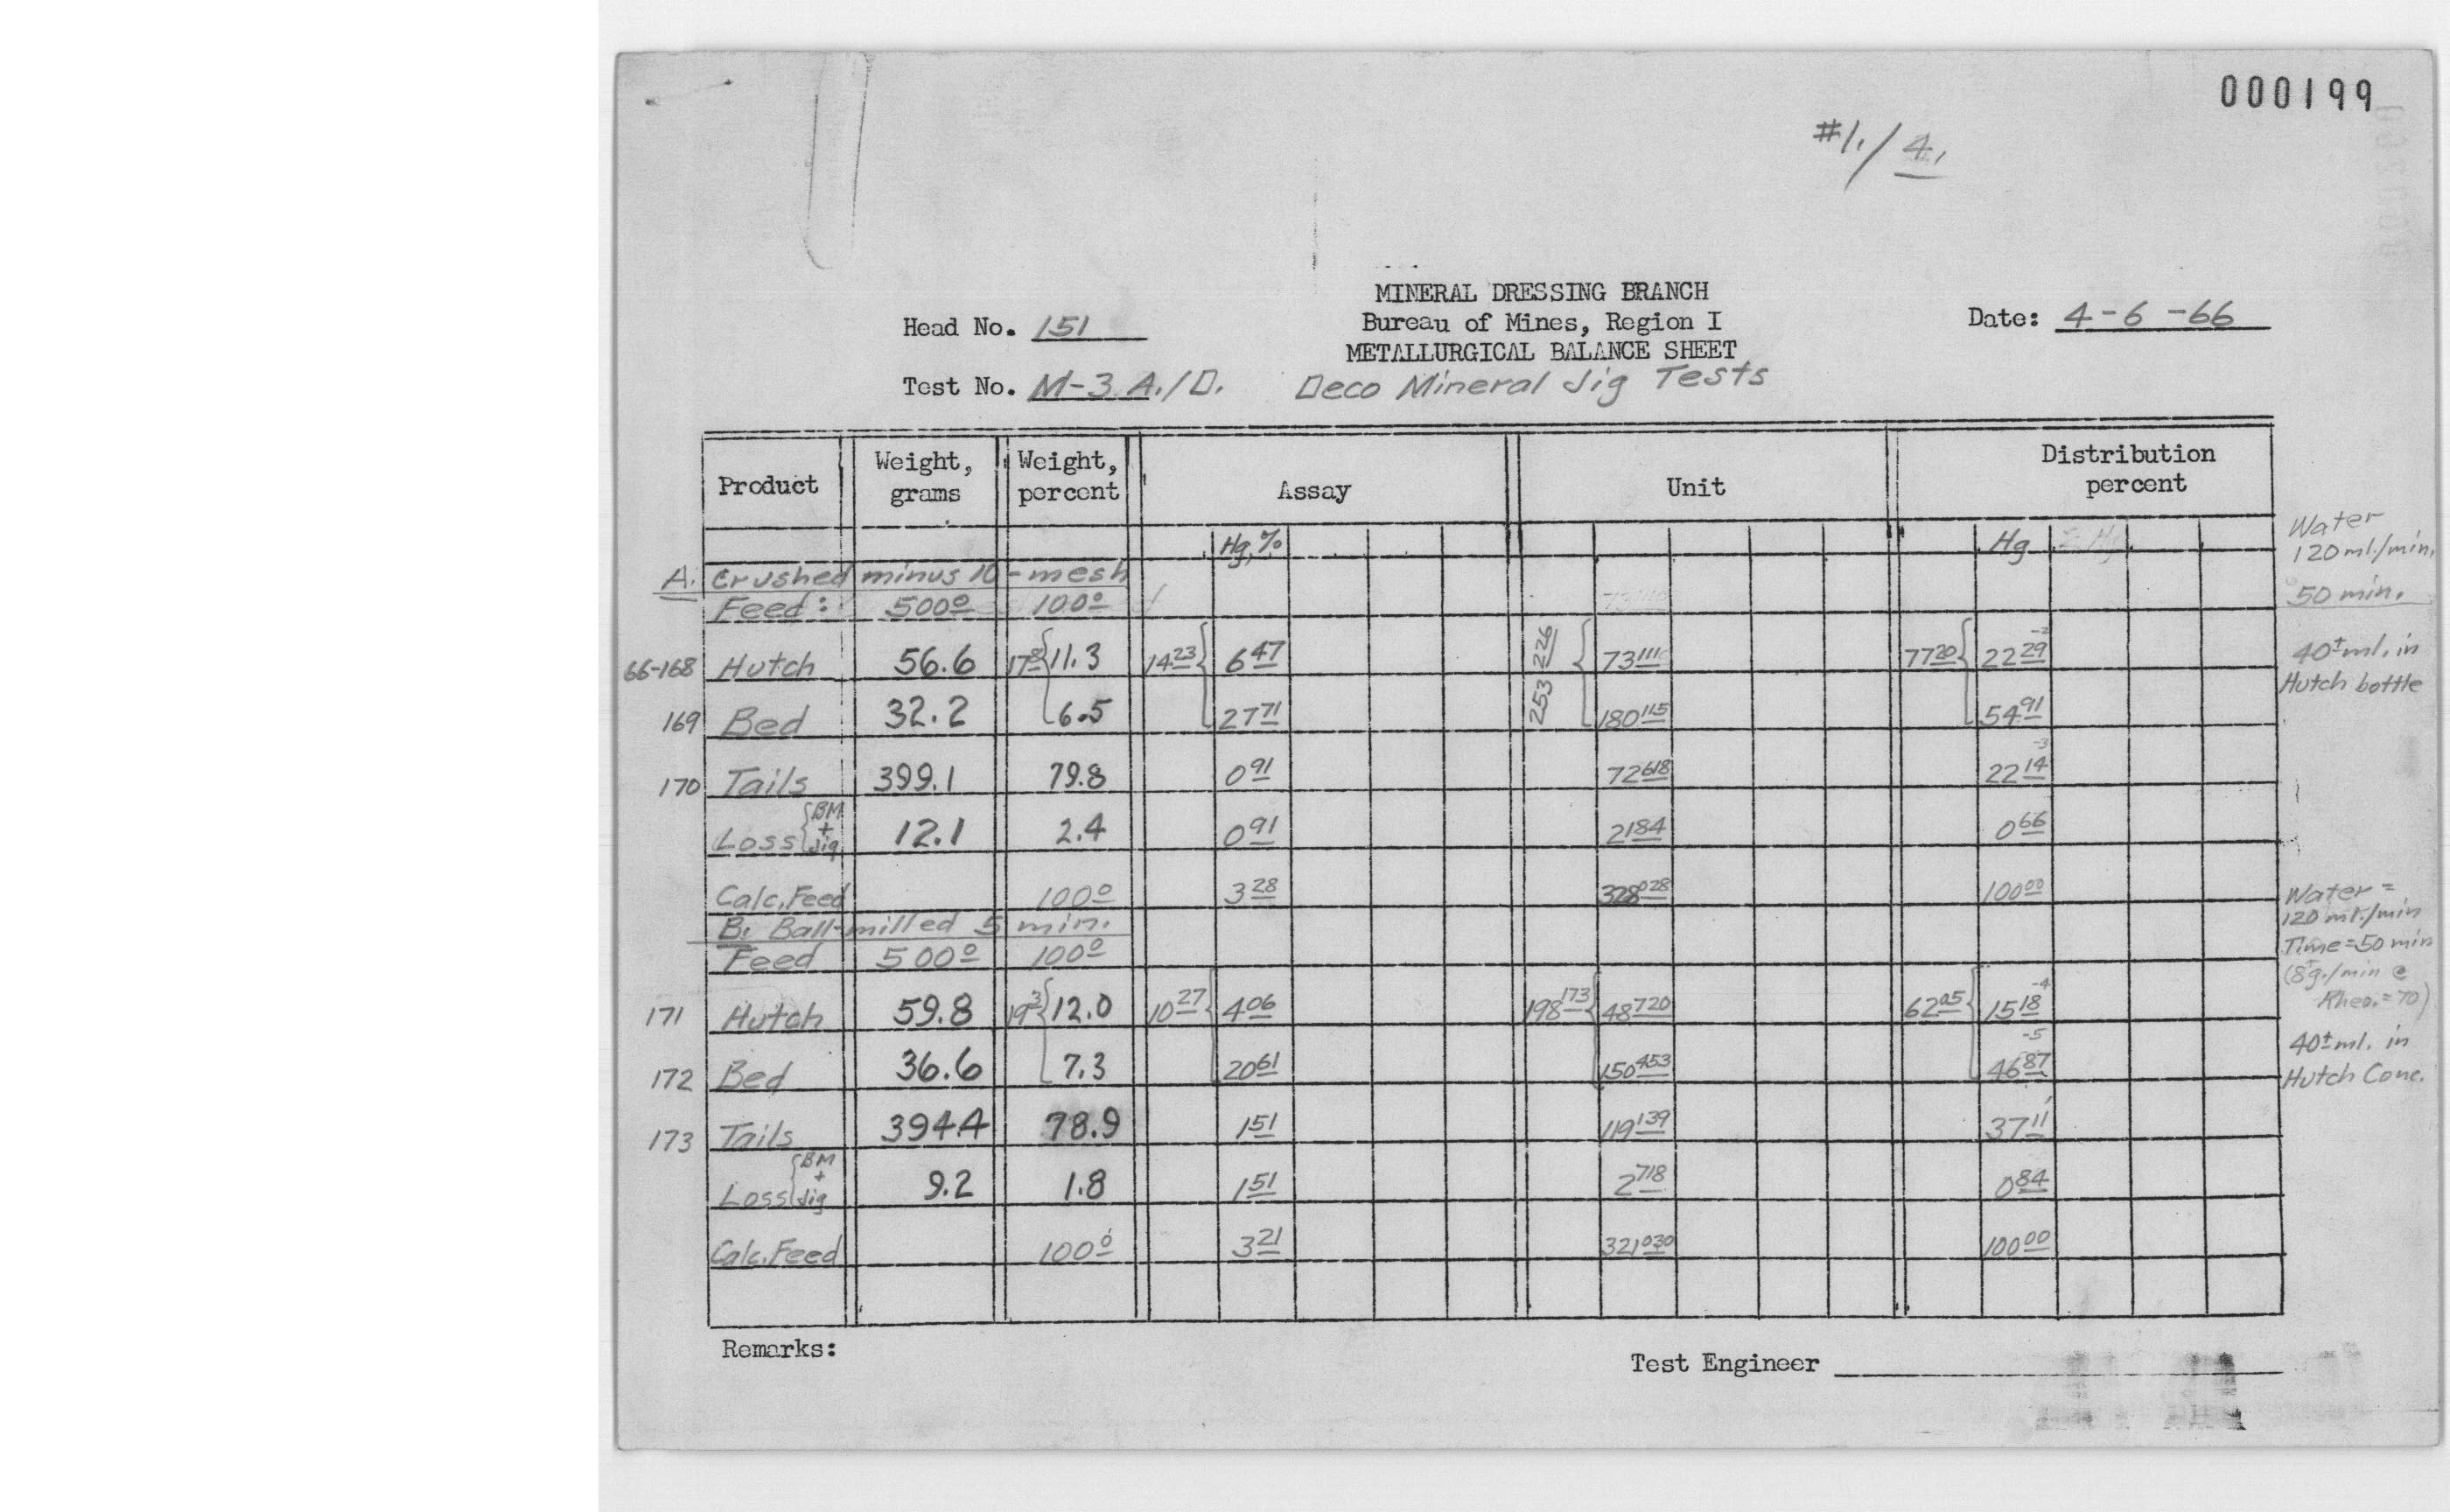 000199
#1./4.
MINERAL DRESSING BRANCH
Head No. 151 Bureau of Mines, Region I Date: 4-6-66
METALLURGICAL BALANCE SHEET
Test No. M-3 A./D. Deco Mineral Jig Tests
Product Weight, grams Weight, percent Assay Unit Distribution percent
Hg, % Hg
Water
120 ml./min.
50 min.
A. Crushed minus 10-mesh
Feed: 500⁰ 100⁰
66-168 Hutch 56.6 17⁸ { 11.3 14²³ { 6⁴⁷ 253 226 { 73¹¹¹ 77²⁰ { 22²⁹ ⁻²
40± ml. in
Hutch bottle
169 Bed 32.2 6.5 27⁷¹ 180¹¹⁵ 54⁹¹
170 Tails 399.1 79.8 0⁹¹ 72⁶¹⁸ 22¹⁴ ⁻³
Loss { BM + Jig 12.1 2.4 0⁹¹ 2¹⁸⁴ 0⁶⁶
Calc. Feed 100⁰ 3²⁸ 328⁰²⁸ 100⁰⁰
B. Ball-milled 5 min.
Feed 500⁰ 100⁰
Water =
120 ml./min
Time = 50 min
(8±g./min @
Rheo. = 70)
171 Hutch 59.8 19³ { 12.0 10²⁷ { 4⁰⁶ 198¹⁷³ { 48⁷²⁰ 62⁰⁵ { 15¹⁸ ⁻⁴
172 Bed 36.6 7.3 20⁶¹ 150⁴⁵³ 46⁸⁷ ⁻⁵
40± ml. in
Hutch Conc.
173 Tails 394.4 78.9 1⁵¹ 119¹³⁹ 37¹¹
Loss { BM + Jig 9.2 1.8 1⁵¹ 2⁷¹⁸ 0⁸⁴
Calc. Feed 100⁰ 3²¹ 321⁰³⁰ 100⁰⁰
Remarks:
Test Engineer